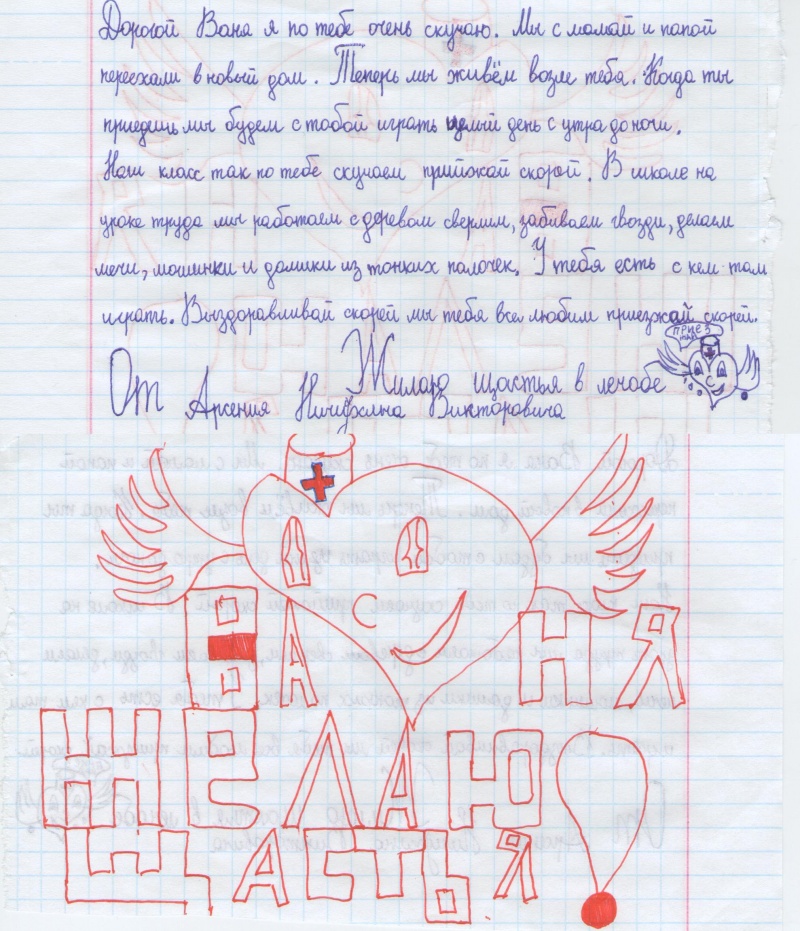 Дорогой Ваня я по тебе очень скучаю. Мы с мамай и папой
переехали в новый дом. Теперь мы живём возле тебя. Когда ты
приедишь мы будем с тобой играть целый день с утра до ночи.
Наш класс так по тебе скучаем прийжай скорой. В школе на
уроке труда мы работаем с деревом сверлим, забиваем гвозди, делаем
мечи, машинки и домики из тонких палочек. У тебя есть с кем там
играть. Выздоравливай скорей мы тебя все любим приезжай скорей.
ПРИЕЗ
ЖАЙ
Жилаю щастья в лечебе
От Арсения Викторовича
ВАНЯ
ЖЕЛАЮ
ЩАСТЬЯ!